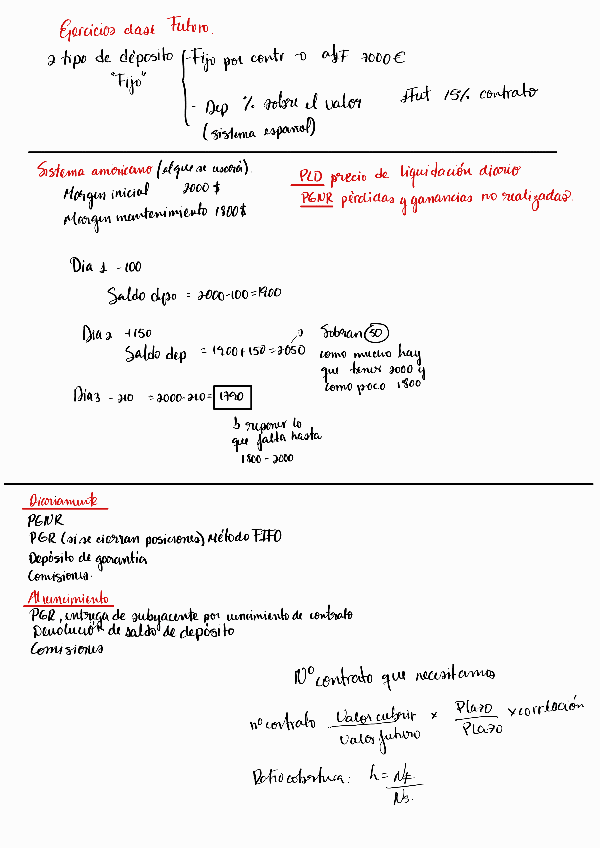 Ejercicios clase Futuro.
2 tipo de déposito
"Fijo"
- Fijo por contr → a/F 2000 €
- Dep % sobre el valor
(sistema español)
#Fut 15% contrato
Sistema americano (el que se usará)
Margen inicial 2000 $
Margen mantenimiento 1800 $
PLD precio de liquidación diario
PGNR pérdidas y ganancias no realizadas.
Dia 1 - 100
Saldo dpo = 2000-100=1900
Dia 2 +150
Saldo dep = 1900+150=2050
Sobran 50
como mucho hay
que tener 2000 y
como poco 1800
Dia 3 - 210 = 2000-210= 1790
↳ reponer lo
que falta hasta
1800 - 2000
Diariamente
PGNR
PGR (si se cierran posiciones) Método FIFO
Depósito de garantía
Comisiones.
Al vencimiento
PGR, entrega de subyacente por vencimiento de contrato
Devolución de saldo de depósito
Comisiones
Nº contrato que necesitamos
nº contrato Valor cubrir x Plazo x correlación
Valor futuro Plazo
Ratio cobertura: h = NF
Ns.